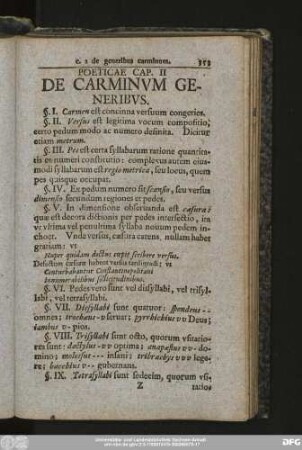 c. 2 de generibus carminum. 353
POETICAE CAP. II
DE CARMINVM GE-
NERIBVS.
§. I. Carmen est concinna versuum congeries.
§. II. Versus est legitima vocum compositio,
certo pedum modo ac numero definita. Dicitur
etiam metrum.
§. III. Pes est certa syllabarum ratione quantita-
tis et numeri constitutio: complexus autem eius-
modi syllabarum est regio metrica, seu locus, quem
pes quisque occupat.
§. IV. Ex pedum numero fit scansio, seu versus
dimensio secundum regiones et pedes.
§. V. In dimensione observanda est caesura:
quae est decora dictionis per pedes intersectio, ita
vt vltima vel penultima syllaba nouum pedem in-
choet. Vnde versus, caesura carens, nullam habet
gratiam: vt
Nuper quidam doctus coepit scribere versus.
Defectum caesurae habent versus sardismodi: vt
Conturbabantur Constantinopolitani
Innumerabilibus sollicitudinibus.
§. VI. Pedes vero sunt vel dissyllabi, vel trisyl-
labi, vel tetrasyllabi.
§. VII. Dissyllabi sunt quatuor: spondeus - -
omnes; trochaeus - v seruat; pyrrhichius vv Deus;
iambus v - pios.
§. VIII. Trisyllabi sunt octo, quorum vsitatio-
res sunt: dactylus - vv optime; anapaestus vv - do-
mino; molossus - - - insani; tribrachys vvv lege-
re; bacchius v - - gubernans.
§. IX. Tetrasyllabi sunt sedecim, quorum vsi-
Z tatio-